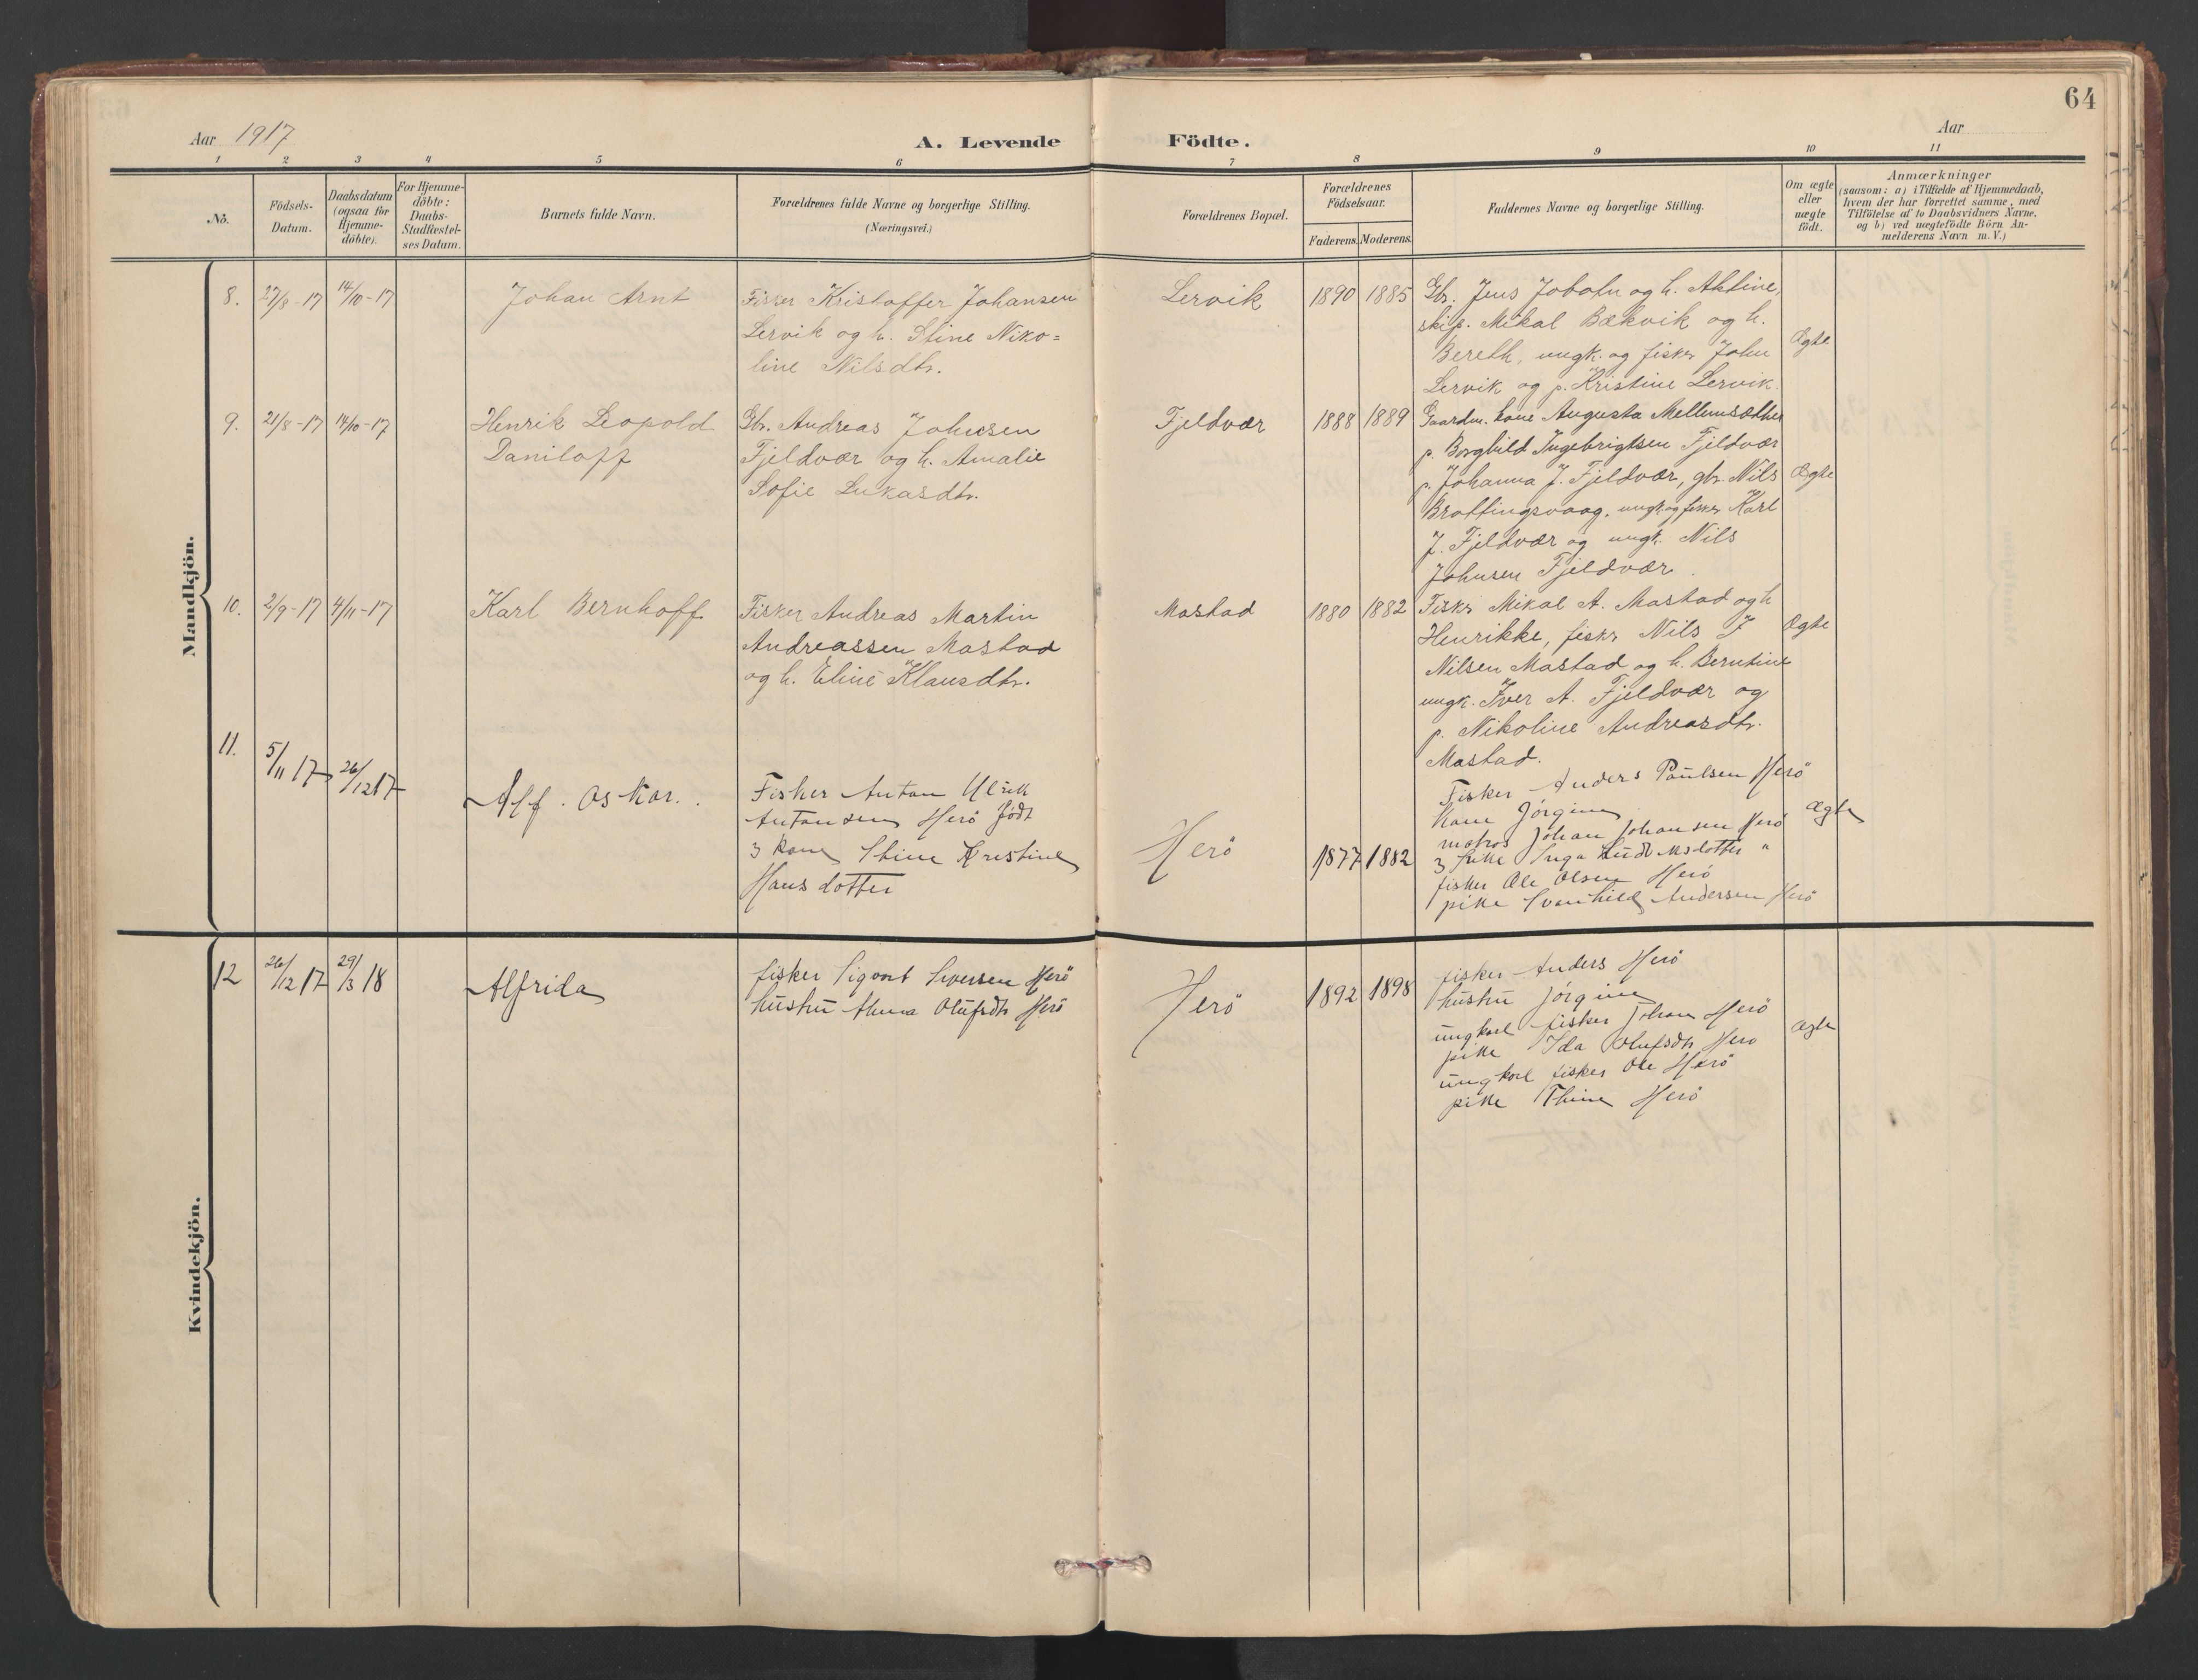 64
Aar 1917
A. Levende Födte.
Aar
1 2 3 4 5 6 7 8 9 10 11
No.
Födsels-
Datum.
Daabsdatum
(ogsaa for
Hjemme-
döbte).
For Hjemme-
döbte:
Daabs-
Stadfæstel-
ses Datum.
Barnets fulde Navn.
Forældrenes fulde Navne og borgerlige Stilling.
(Næringsvei.)
Forældrenes Bopæl.
Forældrenes
Födselsaar.
Faderens. Moderens.
Faddernes Navne og borgerlige Stilling.
Om ægte
eller
uægte
födt.
Anmærkninger
(saasom: a) i Tilfælde af Hjemmedaab,
hvem der har forrettet samme, med
Tilföielse af to Daabsvidners Navne.
og b) ved uægtefödte Börn An-
melderens Navn m. V.)
Mandkjön.
8. 27/8-17 14/10-17 Johan Arnt
Fisker Kristoffer Johansen
Lervik og h. Stine Niko=
line Nilsdtr.
Lervik 1890 1885
Gbr. Jens og h.
skip. Mikal Bækvik og h.
Bereth, ungk. og fisker John
Lervik og p. Kristine Lervik.
Ægte
9. 21/8-17 14/10-17 Henrik Leopold
Daniloff
Gbr. Andreas Johnsen
Fjeldvær og h. Amalie
Sofie Lukasdtr.
Fjeldvær 1888 1889
Gaardm. kone Augusta Mellemsæther
p. Borghild Ingebrigtsen Fjeldvær
p. Johanna J. Fjeldvær, gbr. Nils
Brattingsvaag, ungk. og fisker Karl
J. Fjeldvær og ungk. Nils
Johnsen Fjeldvær.
Ægte
10. 2/9-17 4/11-17 Karl Bernhoff
Fisker Andreas Martin
Andreassen Mastad
og h. Eline Klausdtr.
Mastad 1880 1882
Fisker Mikal A. Mastad og h
Henrikke, fisker Nils J
Nilsen Mastad og h. Berntine
ungk. Iver A. Fjeldvær og
p. Nikoline Andreasdtr.
Mastad.
Ægte
11. 5/11 17 26/12 17 Alf. Oskar.
Fisker Anton Ulrik
Antonsen Herö födt
3 kone Stine Kristine
Hans dotter
Herö 1877 1882
Fisker Anders Paulsen Herö
Kone Jörgine
matros Johan Johansen Herö
3 pike Inga "
fisker Ole Olsen Herö
pike Svanhild Andersen Herö
Ægte
Kvindekjön.
12 26/12 17 29/3 18 Alfrida
fisker Sigvart Siversen Herö
hustru Anna Olufsdtr Herö
Herö 1892 1898
fisker Anders Herö
hustru Jörgine
ungkarl fisker Johan Herö
pike Ida Olufsdtr Herö
ungkarl fisker Ole Herö
pike Thine Herö
ægte